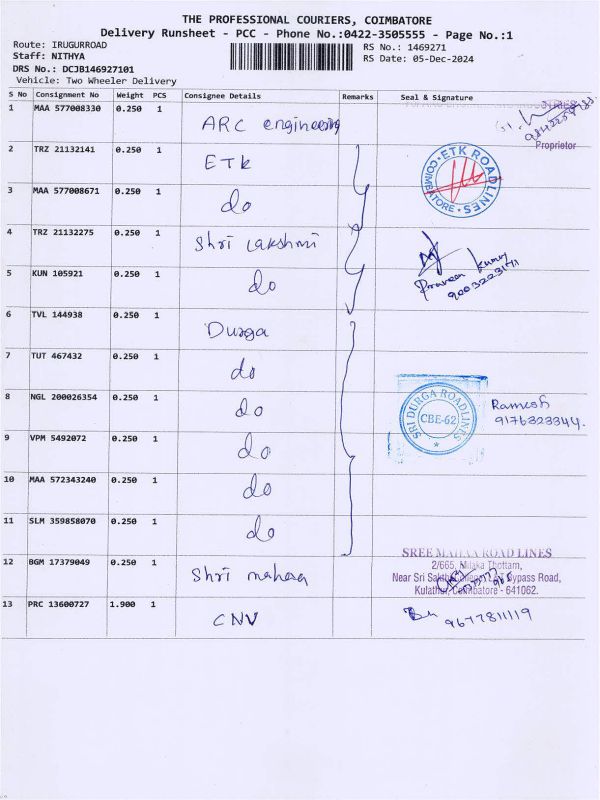 THE PROFESSIONAL COURIERS, COIMBATORE
Delivery Runsheet - PCC - Phone No.:0422-3505555 - Page No.:1
Route: IRUGURROAD
Staff: NITHYA
DRS No.: DCJB146927101
Vehicle: Two Wheeler Delivery
RS No.: 1469271
RS Date: 05-Dec-2024
S No Consignment No Weight PCS Consignee Details Remarks Seal & Signature
1 MAA 577008330 0.250 1 ARC engineering
Proprietor
2 TRZ 21132141 0.250 1 ETK
ETK ROADLINES COIMBATORE
3 MAA 577008671 0.250 1 do
4 TRZ 21132275 0.250 1 Shri Lakshmi
5 KUN 105921 0.250 1 do
Praveen Kumar
9003223171
6 TVL 144938 0.250 1 Durga
7 TUT 467432 0.250 1 do
8 NGL 200026354 0.250 1 do
SRI DURGA ROADLINES
CBE-62
Ramesh
9176323344.
9 VPM 5492072 0.250 1 do
10 MAA 572343240 0.250 1 do
11 SLM 359858070 0.250 1 do
12 BGM 17379049 0.250 1 Shri mahaa
SREE MAHAA ROAD LINES
2/665, Thottam,
Near Sri Bypass Road,
Kulathur, Coimbatore - 641062.
13 PRC 13600727 1.900 1 CNV
9677811119